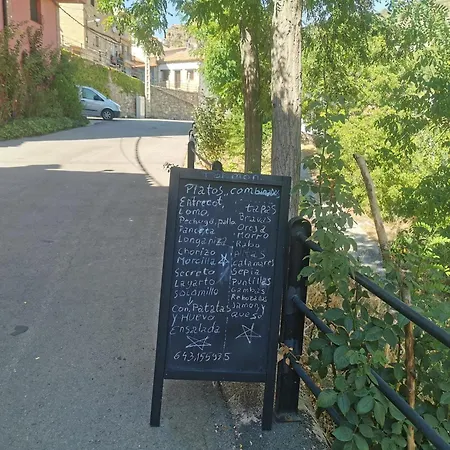 Platos combinados
Entrecot,
Lomo,
Pechuga, pollo
Panceta
Longaniza
Chorizo
Morcilla
Secreto
Lagarto
Solomillo
Con Patatas
y Huevo
Ensalada
tapas
Bravas
Oreja
Morro
Rabo
Calamares
Sepia
Puntillas
Gambas
Rebozadas
Jamon y
queso